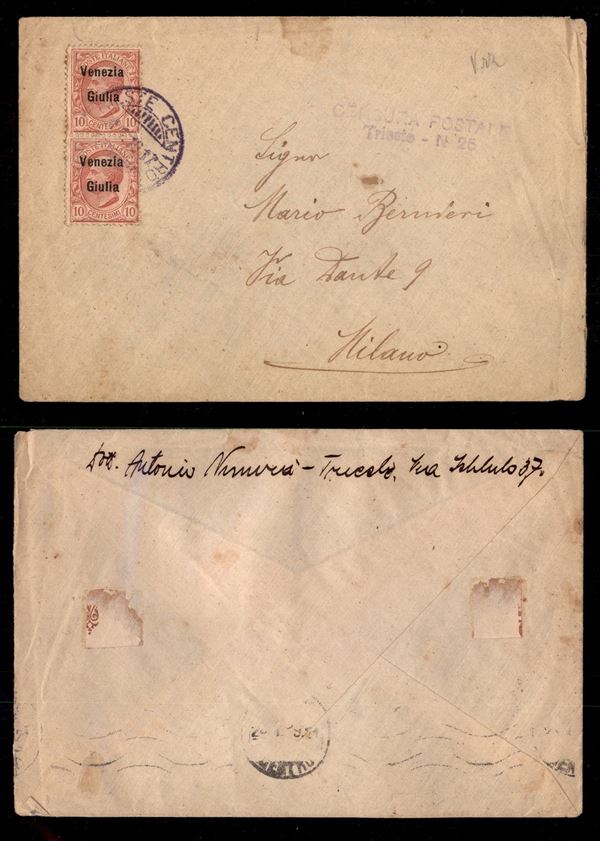 POSTE ITALIANE
Venezia
Giulia
10 CENTESIMI 10
POSTE ITALIANE
Venezia
Giulia
10 CENTESIMI 10
STE CENTRO
CENSURA POSTALE
Trieste - N 26
Signor
Mario Bernieri
Via Dante 9
Milano
Dott. Antonio - Trieste, Via Istituto 37.
CENTRO